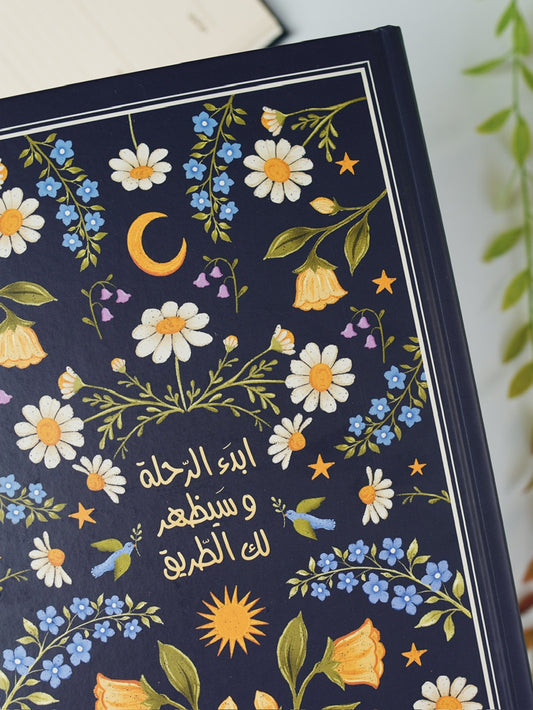 ابدَء الرّحلة
و سَيَظهر
لك الطّريق